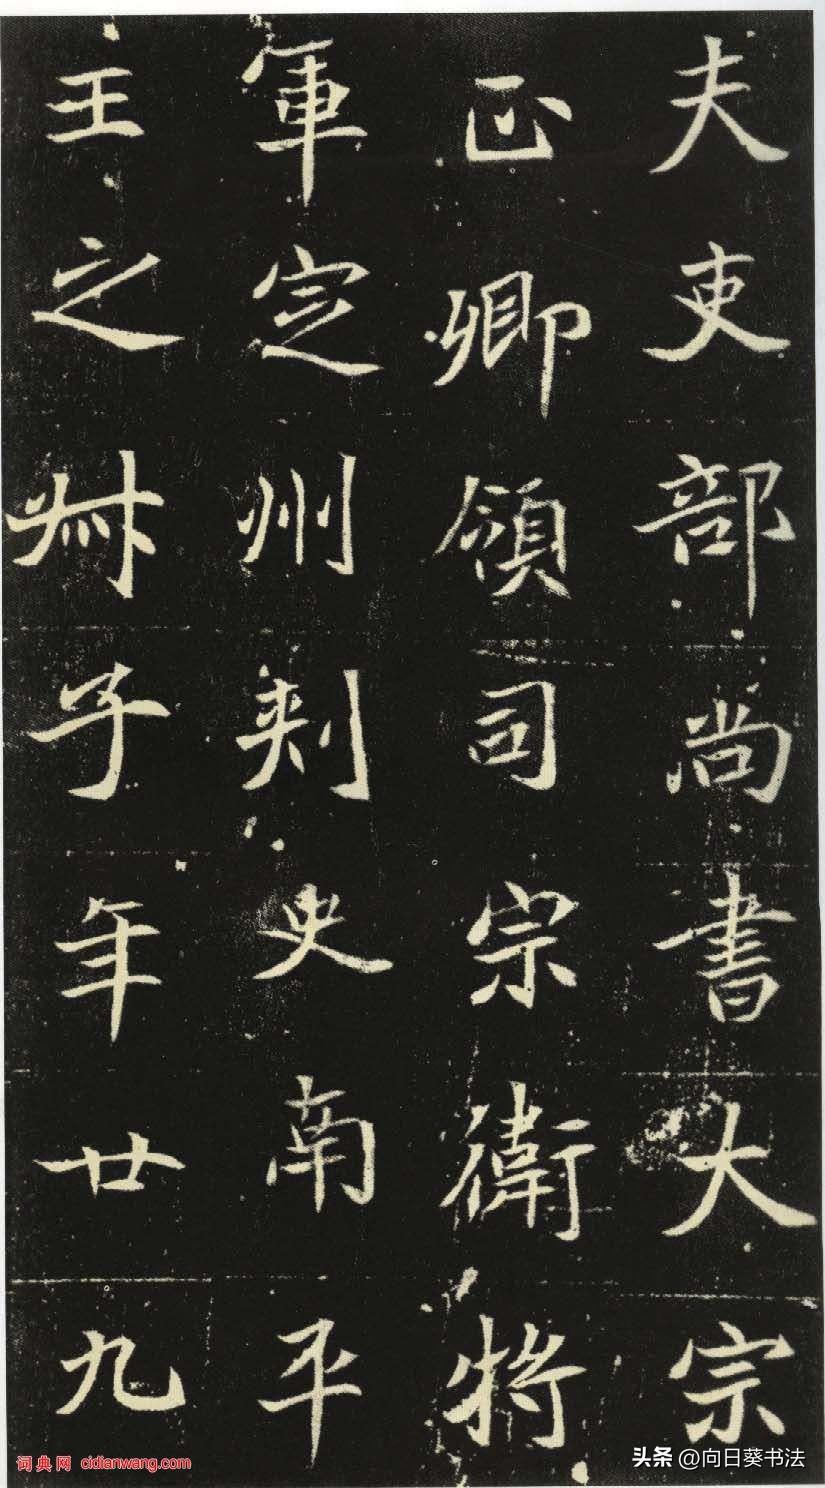 夫吏部尚書大宗
正卿領司宗衛將
軍定州刺史南平
王之叔子年廿九
词典网 cidianwang.com
头条 @向日葵书法